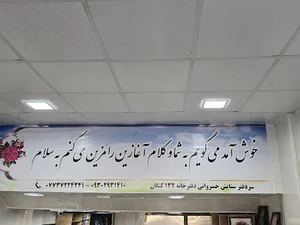 خوش آمد می گویم به شما و کلام آغازین را مزین می کنم به سلام
سردفتر ستایش خسروانی دفترخانه ۱۳۲ کنگان
۰۷۷۳۷۲۲۴۲۴۱ - ۰۹۳۰۲۹۳۱۴۱۰